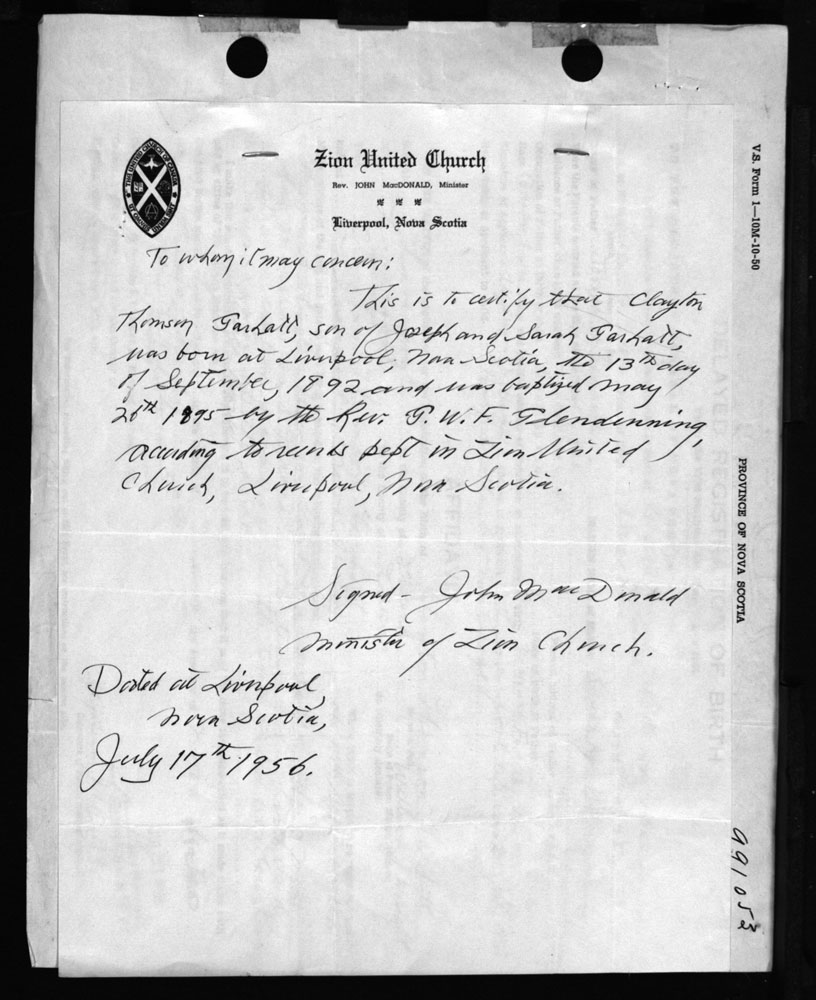 Zion United Church
Rev. JOHN MacDONALD, Minister
Liverpool, Nova Scotia
To whom it may concern:
This is to certify that Clayton
Thomson Tarhatt, son of Joseph and Sarah Tarhatt,
was born at Liverpool, Nova Scotia, the 13th day
of September, 1892 and was baptized May
26th 1895 by the Rev. T. W. F. Glendenning,
according to records kept in Zion United
Church, Liverpool, Nova Scotia.
Signed - John MacDonald
Minister of Zion Church.
Dated at Liverpool,
Nova Scotia,
July 17th 1956.
V.S. Form 1—10M-10-50
PROVINCE OF NOVA SCOTIA
DELAYED REGISTRATION OF BIRTH
991053